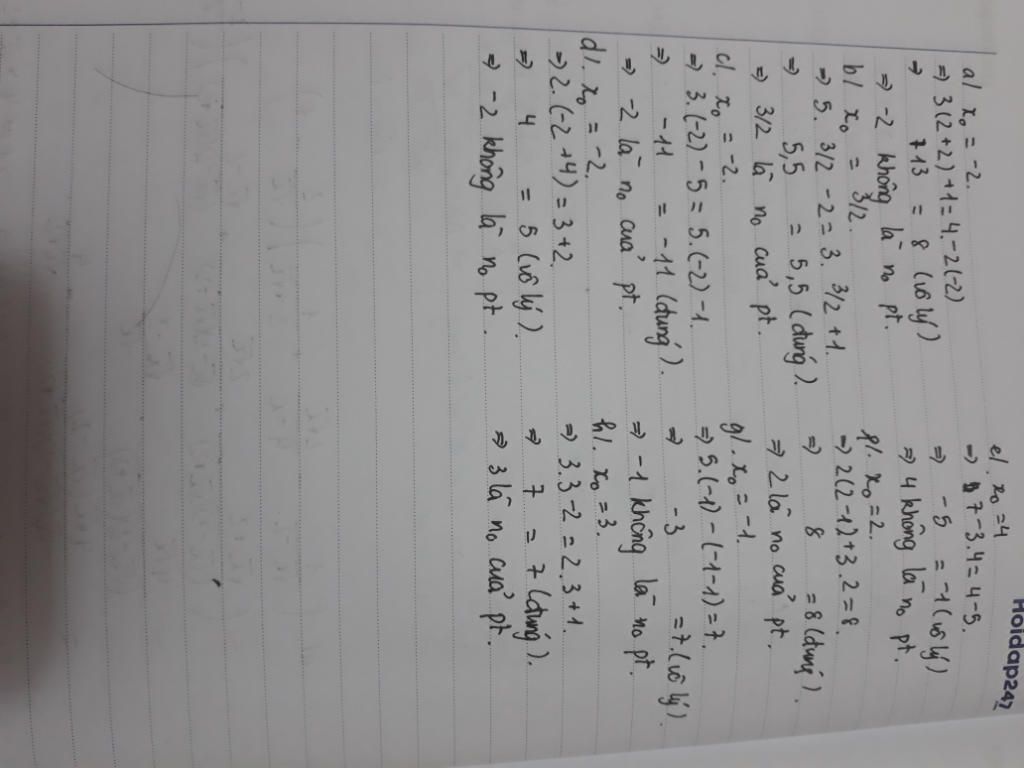 Hoidap247
a/ x₀ = -2.
⇒ 3(2+2)+1=4.-2(-2)
⇒ 13 = 8 (vô lý)
⇒ -2 không là n₀ pt.
b/ x₀ = 3/2.
⇒ 5. 3/2 -2=3. 3/2 +1.
⇒ 5,5 = 5,5 (đúng).
⇒ 3/2 là n₀ của pt.
c/. x₀ = -2.
⇒ 3.(-2)-5=5.(-2)-1.
⇒ -11 = -11 (đúng).
⇒ -2 là n₀ của pt.
d/. x₀ = -2.
⇒ 2.(-2+4)=3+2.
⇒ 4 = 5 (vô lý).
⇒ -2 không là n₀ pt.
e/. x₀=4
⇒ 7-3.4=4-5.
⇒ -5 = -1 (vô lý)
⇒ 4 không là n₀ pt.
f/. x₀=2.
⇒ 2(2-1)+3.2=8.
⇒ 8 =8 (đúng).
⇒ 2 là n₀ của pt.
g/. x₀=-1.
⇒ 5.(-1)-(-1-1)=7.
⇒ -3 =7.(vô lý).
⇒ -1 không là n₀ pt.
h/. x₀=3.
⇒ 3.3-2=2.3+1.
⇒ 7 = 7 (đúng).
⇒ 3 là n₀ của pt.